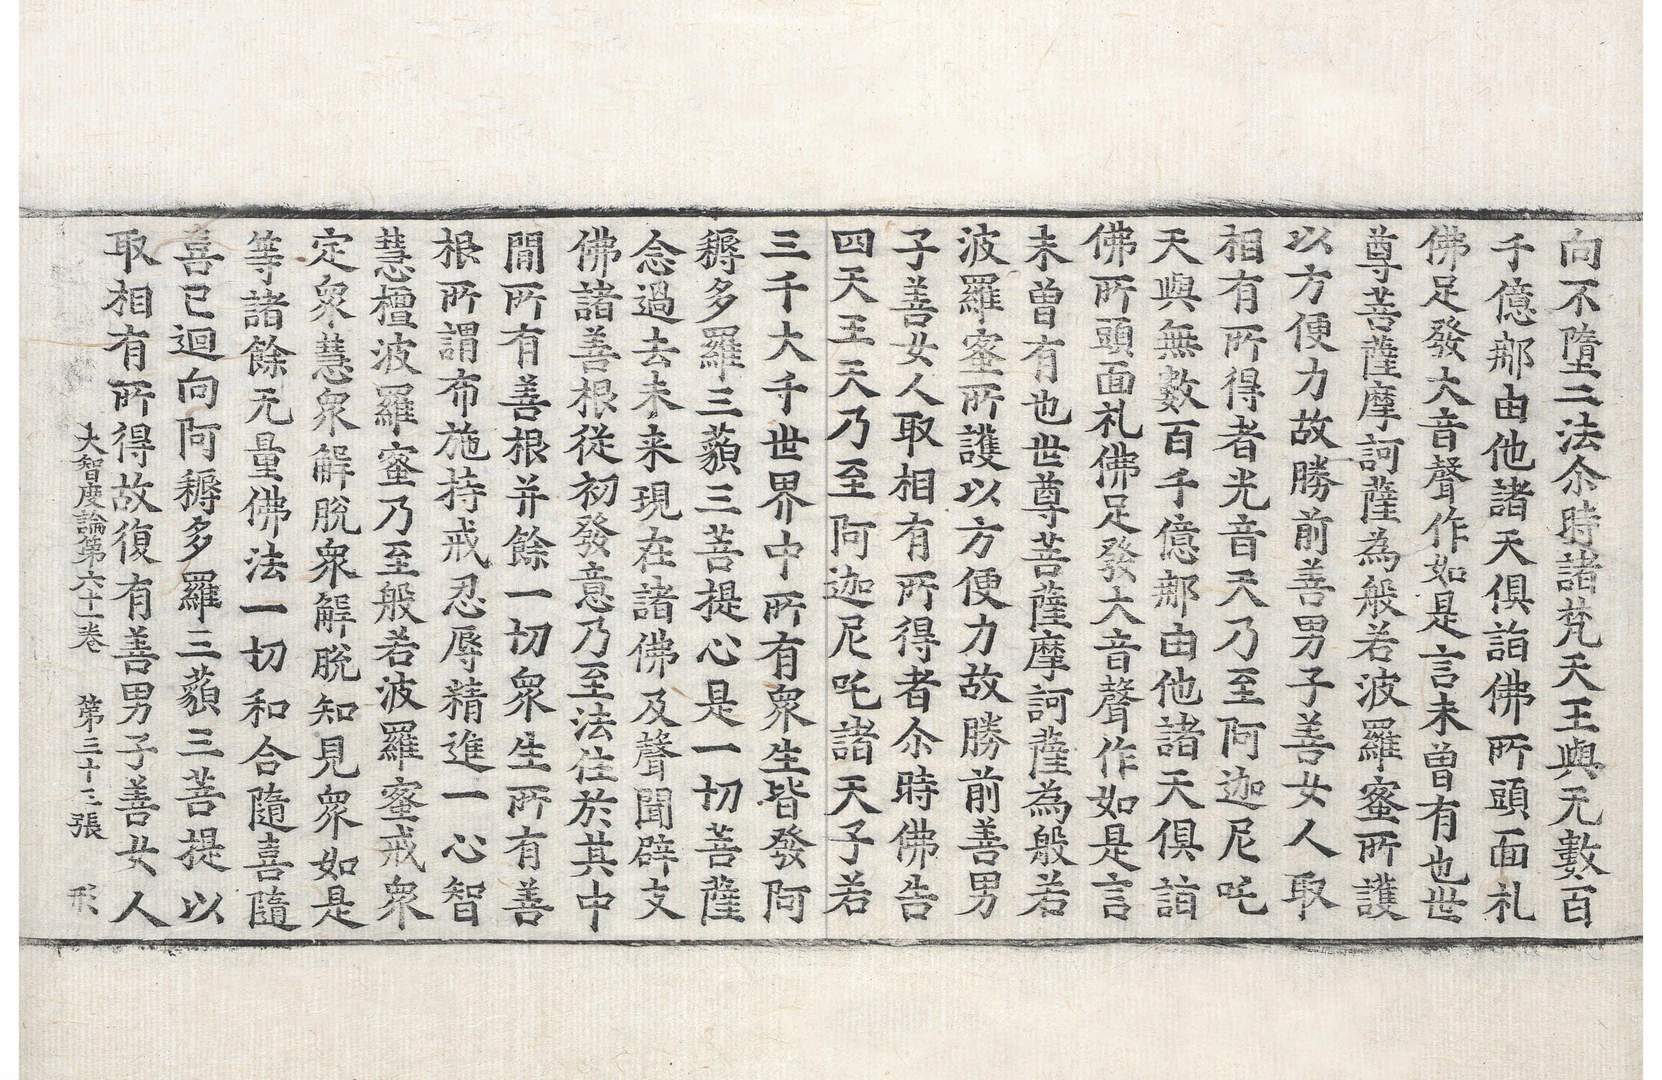 向不墮三法尒時諸梵天王與无數百
千億那由他諸天俱詣佛所頭面礼
佛足發大音聲作如是言未曾有也世
尊菩薩摩訶薩為般若波羅蜜所護
以方便力故勝前善男子善女人取
相有所得者光音天乃至阿迦尼吒
天與無數百千億那由他諸天俱詣
佛所頭面礼佛足發大音聲作如是言
未曾有也世尊菩薩摩訶薩為般若
波羅蜜所護以方便力故勝前善男
子善女人取相有所得者尒時佛告
四天王天乃至阿迦尼吒諸天子若
三千大千世界中所有衆生皆發阿
耨多羅三藐三菩提心是一切菩薩
念過去未来現在諸佛及聲聞辟支
佛諸善根從初發意乃至法住於其中
閒所有善根并餘一切衆生所有善
根所謂布施持戒忍辱精進一心智
慧檀波羅蜜乃至般若波羅蜜戒衆
定衆慧衆解脫衆解脫知見衆如是
等諸餘无量佛法一切和合隨喜隨
喜已迴向阿耨多羅三藐三菩提以
取相有所得故復有善男子善女人
大智度論第六十一卷 第三十三張 形